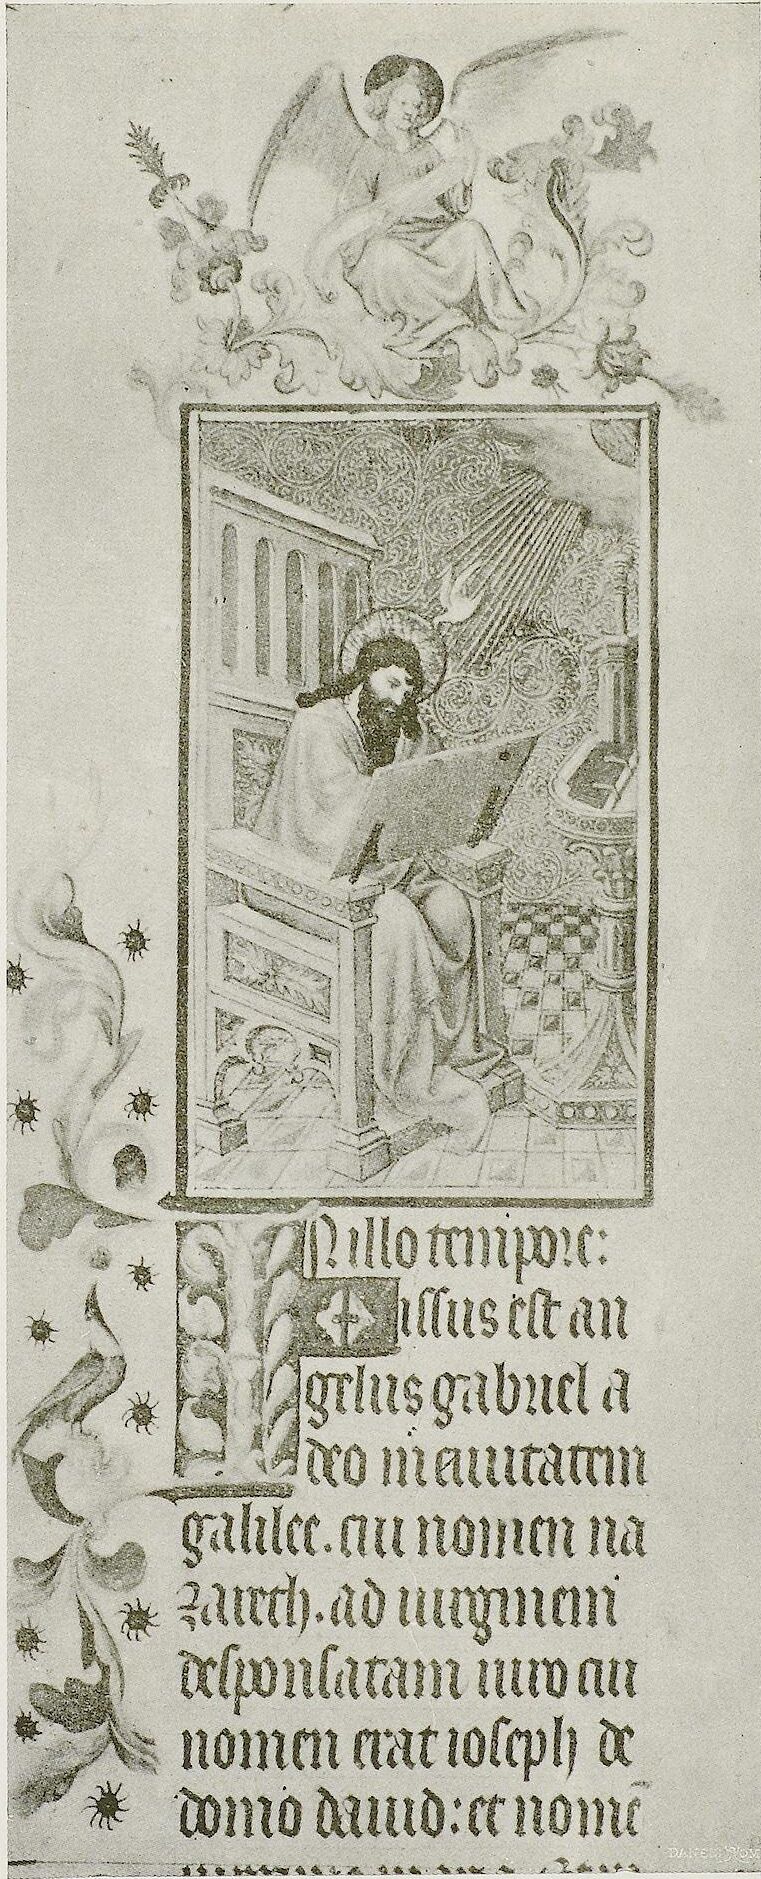 IN illo tempore:
Missus est an
gelus gabriel a
deo in ciuitatem
galilee. cui nomen na
zareth. ad uirginem
desponsatam uiro cui
nomen erat ioseph de
domo dauid: et nomē
DANESI ROM